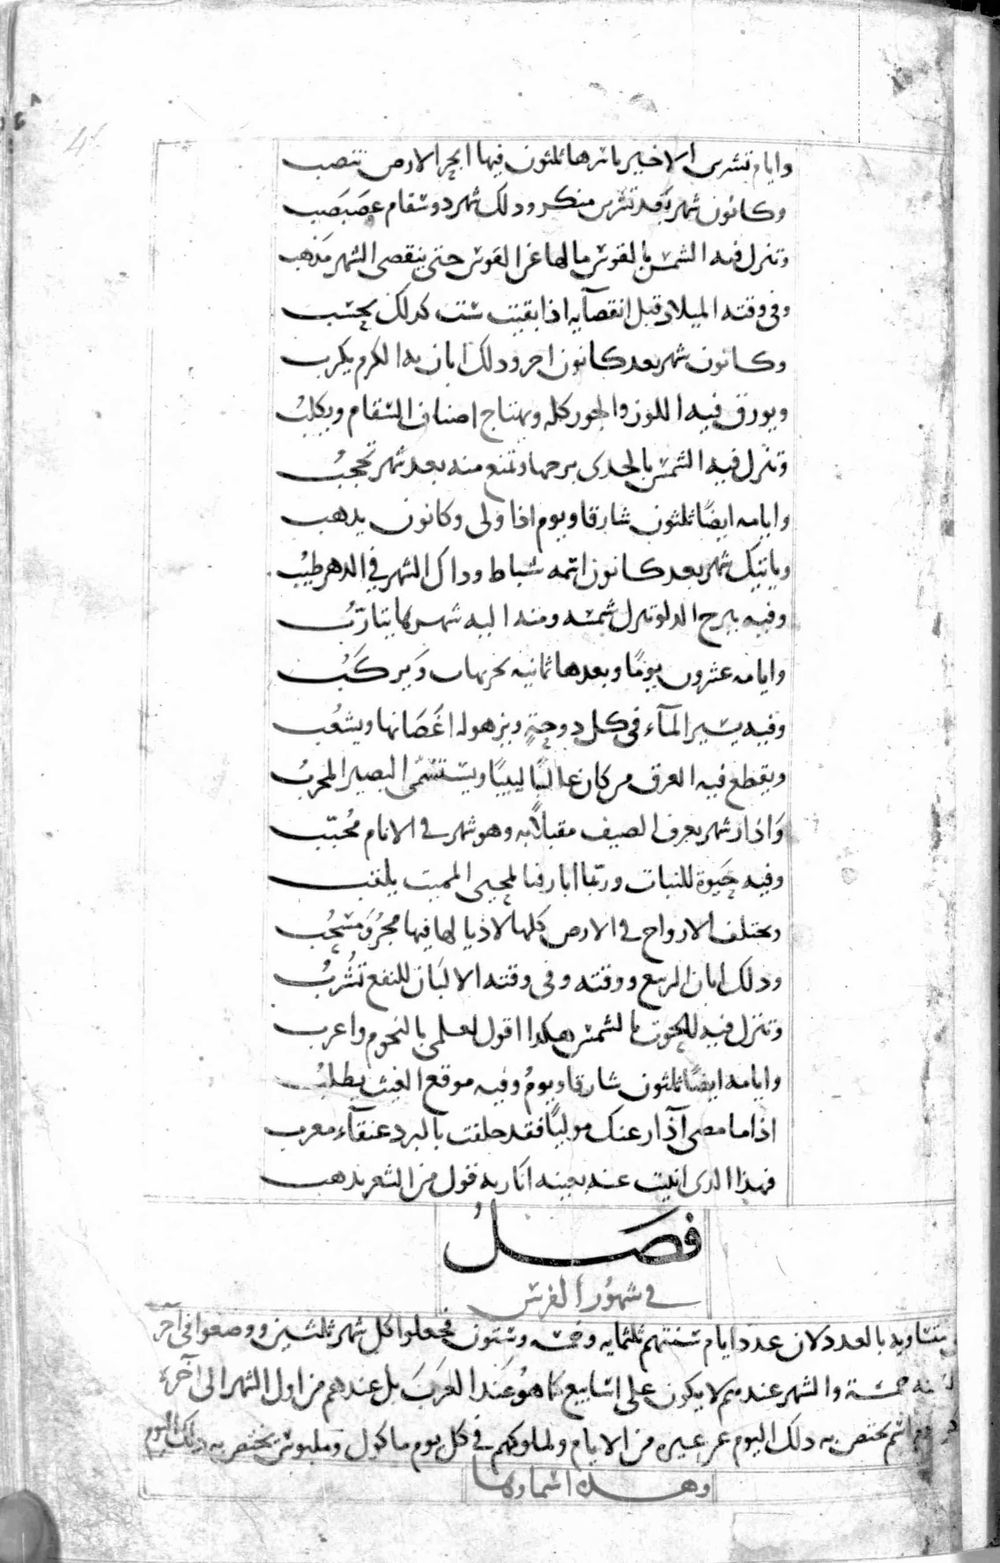 وايام تشرين الاخير باسرها ثلثون فيها ابحر الارض تنصب
وكانون شهر بعد تشرين منكر وذلك شهر ذو سقام عصبصب
وتنزل فيه الشمس بالقوس مالها عن القوس حتى ينقضى الشهر مذهب
وفى وقته الميلاد قبل انقضآيه اذا بقيت ست كذلك يحسب
وكانون شهر بعد كانون اخر وذلك ابان به الكرم يكرب
ويورق فيه اللوز والحور كله ويهتاج اصناف السقام ويكلب
وتنزل فيه الشمس بالجدى برجها وتمنع منه بعد شهر تحجب
وايامه ايضًا ثلثون شارقا ويوم اذا ولى وكانون يذهب
وياتيك شهر بعد كانون اسمه شباط وذاك الشهر في الدهر طيب
وفيه ببرج الدلو تنزل شمسه ومنه اليه شهرها يتاربُ
وايامه عشرون يومًا وبعدها ثمانية وَيركَبُ
وفيه يسير المآء فى كل دوحةٍ ويزهو له اغصَانها ويشعب
ويقطع فيه العرق من كان عالمًا لبيبًا ويستشمى البصير المجرب
وَاذار شهر يعرف الصيف مقبلاً به وهو شهر في الانام مُحبّب
وفيه حَيوة للنبات وربما المحيى المميت يلقب
وتختلف الارواح في الارض كلها لاذيالها فيها مجرُ وَمسْحب
وذلك ابان الربيع ووقته وفى وقته الالبَان للنفع تشُربُ
وتنزل فيه للحوت بالشمس هكذا اقول لعلمى بالنجوم واعرب
وايامه ايضًا ثلثون شارقا ويومُ وفيه موقع الغيث يطلبُ
اذا ما مضى آذار عنك موليًا فقد حلقت بالبرد عنقآء مغرب
فهذا الذى انبيت عنه بعينه اتاريه قول من الشعر يذهب
فصل
في شهور الفرس
متساويه بالعدد لان عدد ايام سنتهم ثلثمايه وخمسه وستون فجعلوا كل شهر ثلثين ووضعوا فى آخر
السنه خمسة والشهر عندهم لا يكون على اسابيع كما هو عند العَرَبَ بل عندهم من اول الشهر الى آخره
يوم اسم يختص به ذلك اليوم عن غيره من الايام ولملوكهم فى كل يوم ماكول وملبوس يختص به ذلك اليوم
وهذه اسماوها